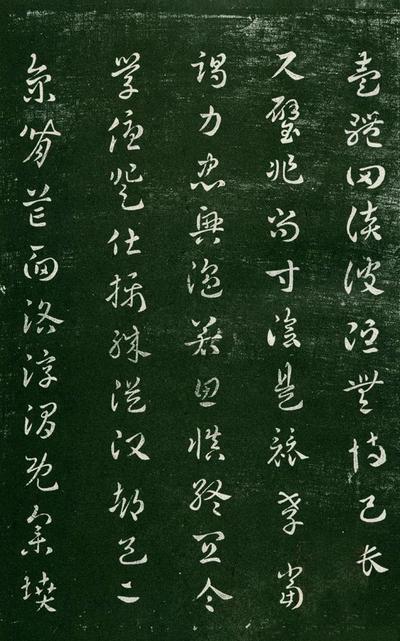 壹體罔談彼短靡恃己長
尺璧非寶寸陰是競孝當
竭力忠興溫若思慎終宜令
學優登仕攝職從政都邑二
京背芒面洛浮渭既集墳